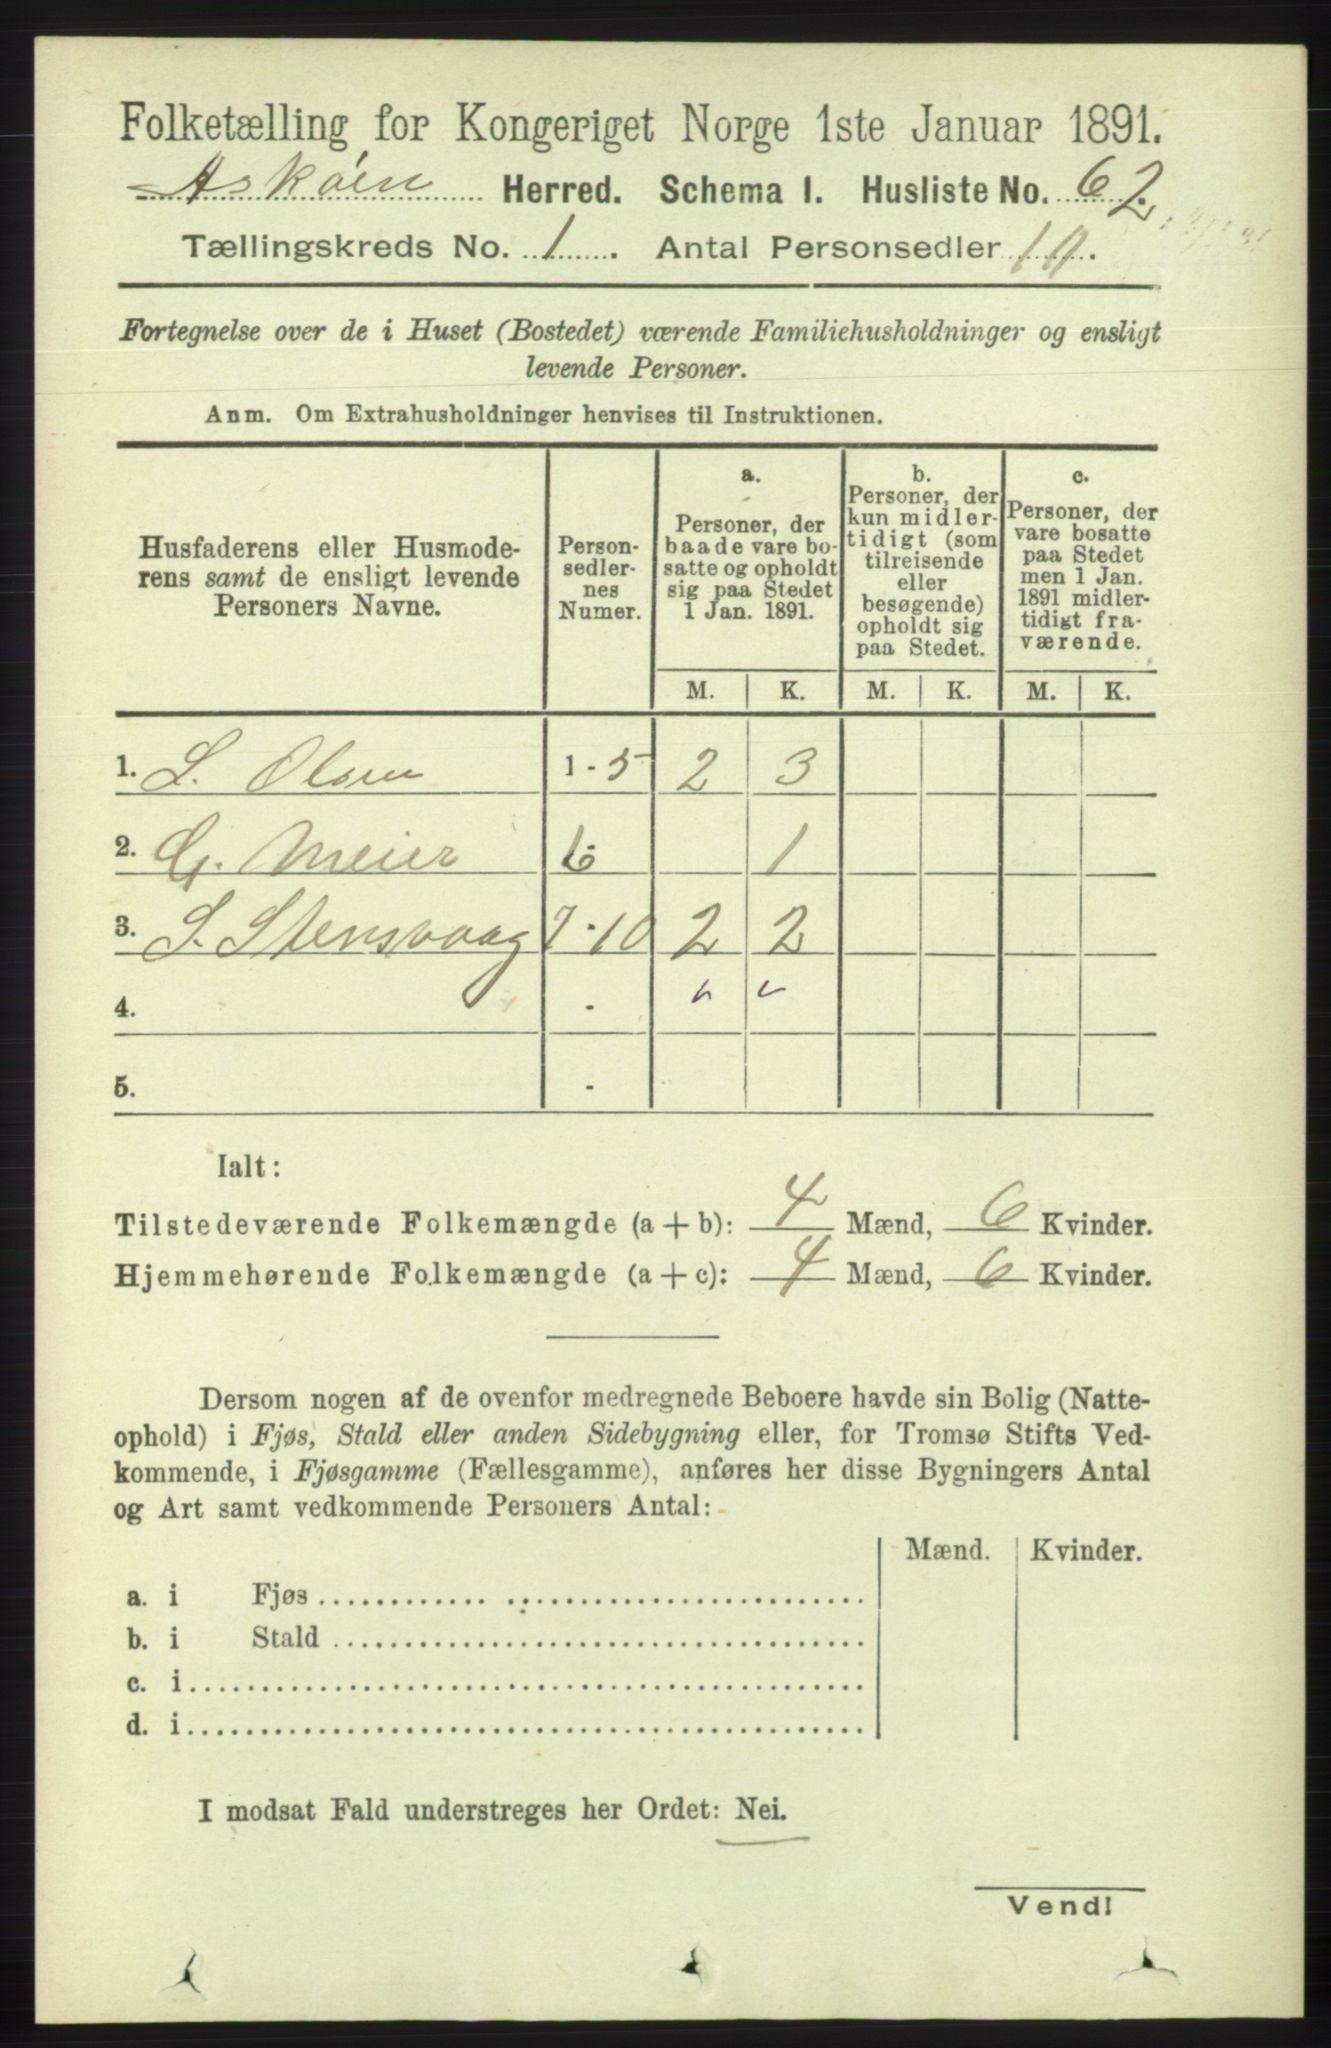 Folketælling for Kongeriget Norge 1ste Januar 1891.
Askøen Herred. Schema 1. Husliste No. 62.
Tællingskreds No. 1. Antal Personsedler 10.
Fortegnelse over de i Huset (Bostedet) værende Familiehusholdninger og ensligt
levende Personer.
Anm. Om Extrahusholdninger henvises til Instruktionen.
Husfaderens eller Husmode-
rens samt de ensligt levende
Personers Navne.
Person-
sedler-
nes
Numer.
a.
Personer, der
baade vare bo-
satte og opholdt
sig paa Stedet
1 Jan. 1891.
b.
Personer, der
kun midler-
tidigt (som
tilreisende
eller
besøgende)
opholdt sig
paa Stedet.
c.
Personer, der
vare bosatte
paa Stedet
men 1 Jan.
1891 midler-
tidigt fra-
værende.
M. K. M. K. M. K.
1. L. Olsen 1-5 2 3
2. G. Meier 6 1
3. S. Stensvaag 7-10 2 2
4. -
5. -
Ialt:
Tilstedeværende Folkemængde (a + b): 4 Mænd, 6 Kvinder.
Hjemmehørende Folkemængde (a + c): 4 Mænd, 6 Kvinder.
Dersom nogen af de ovenfor medregnede Beboere havde sin Bolig (Natte-
ophold) i Fjøs, Stald eller anden Sidebygning eller, for Tromsø Stifts Ved-
kommende, i Fjøsgamme (Fællesgamme), anføres her disse Bygningers Antal
og Art samt vedkommende Personers Antal:
Mænd. Kvinder.
a. i Fjøs
b. i Stald
c. i
d. i
I modsat Fald understreges her Ordet: Nei.
Vend!